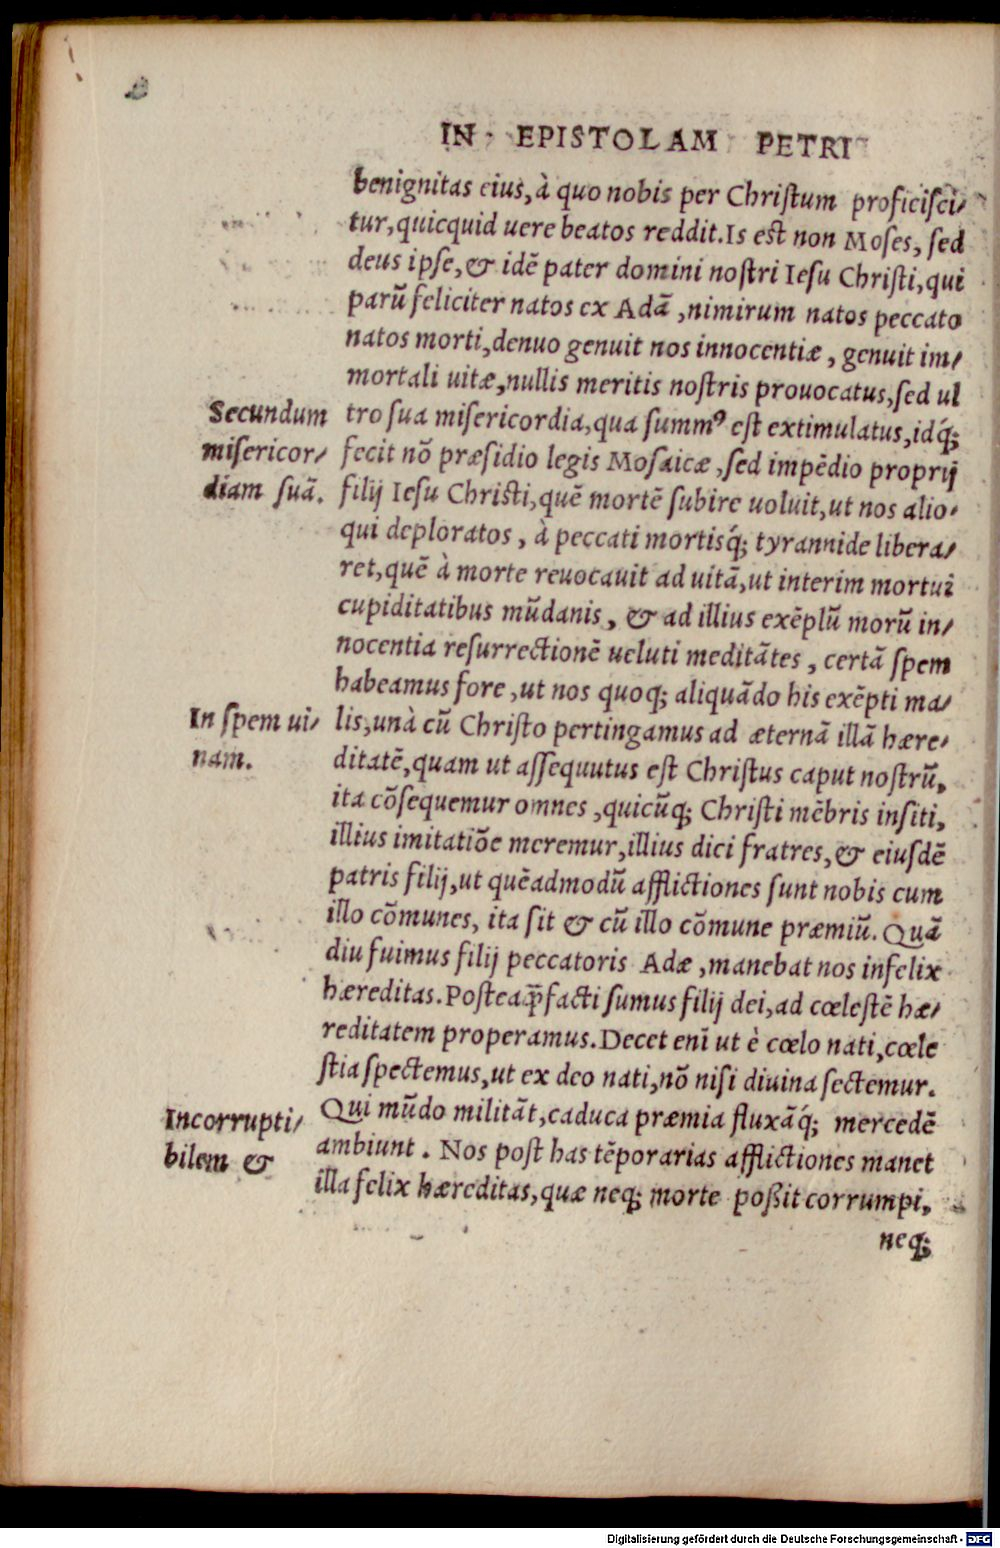 IN EPISTOLAM PETRI
benignitas eius, à quo nobis per Christum proficisci-
tur, quicquid uere beatos reddit. Is est non Moses, sed
deus ipse, & idē pater domini nostri Iesu Christi, qui
parū feliciter natos ex Adā, nimirum natos peccato
natos morti, denuo genuit nos innocentiæ, genuit im-
mortali uitæ, nullis meritis nostris prouocatus, sed ul
Secundum
misericor-
diam suā.
tro sua misericordia, qua summꝰ est extimulatus, idq́;
fecit nō præsidio legis Mosaicæ, sed impēdio proprij
filij Iesu Christi, quē mortē subire uoluit, ut nos alio-
qui deploratos, à peccati mortisq́; tyrannide libera-
ret, quē à morte reuocauit ad uitā, ut interim mortui
cupiditatibus mūdanis, & ad illius exēplū morū in-
nocentia resurrectionē ueluti meditātes, certā spem
habeamus fore, ut nos quoq; aliquādo his exēpti ma-
In spem ui-
nam.
lis, unà cū Christo pertingamus ad æternā illā hære-
ditatē, quam ut assequutus est Christus caput nostrū,
ita cōsequemur omnes, quicūq; Christi mēbris insiti,
illius imitatiōe meremur, illius dici fratres, & eiusdē
patris filij, ut quēadmodū afflictiones sunt nobis cum
illo cōmunes, ita sit & cū illo cōmune præmiū. Quā
diu fuimus filij peccatoris Adæ, manebat nos infelix
hæreditas. Posteaq̄ facti sumus filij dei, ad cœlestē hæ-
reditatem properamus. Decet enī ut è cœlo nati, cœle
stia spectemus, ut ex deo nati, nō nisi diuina sectemur.
Incorrupti-
bilem &
Qui mūdo militāt, caduca præmia fluxāq́; mercedē
ambiunt. Nos post has tēporarias afflictiones manet
illa felix hæreditas, quæ neq; morte poßit corrumpi,
neq;
Digitalisierung gefördert durch die Deutsche Forschungsgemeinschaft - DFG